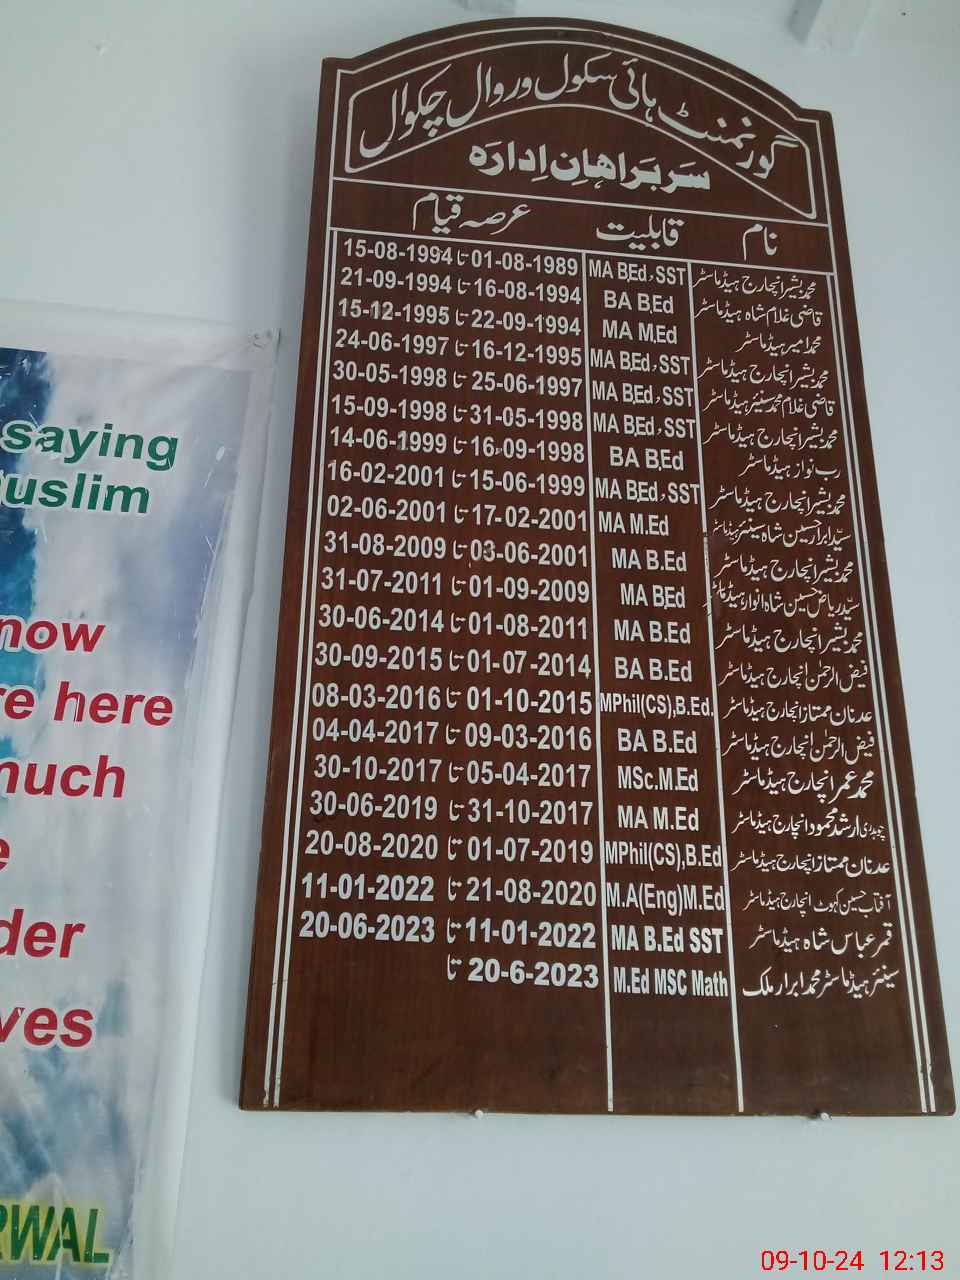 گورنمنٹ ہائی سکول وروال چکوال
سربراہانِ اِدارہ
نام قابلیت عرصہ قیام
محمد بشیر انچارج ہیڈماسٹر MA B.Ed، SST 01-08-1989 تا 15-08-1994
قاضی غلام شاہ ہیڈماسٹر BA B.Ed 16-08-1994 تا 21-09-1994
محمد امیر ہیڈماسٹر MA M.Ed 22-09-1994 تا 15-12-1995
محمد بشیر انچارج ہیڈماسٹر MA B.Ed، SST 16-12-1995 تا 24-06-1997
قاضی غلام محمد سنیئر ہیڈماسٹر MA B.Ed، SST 25-06-1997 تا 30-05-1998
محمد بشیر انچارج ہیڈماسٹر MA B.Ed، SST 31-05-1998 تا 15-09-1998
رب نواز ہیڈماسٹر BA B.Ed 16-09-1998 تا 14-06-1999
محمد بشیر انچارج ہیڈماسٹر MA B.Ed، SST 15-06-1999 تا 16-02-2001
سیّد ابرار حسین شاہ سینئر ہیڈماسٹر MA M.Ed 17-02-2001 تا 02-06-2001
محمد بشیر انچارج ہیڈماسٹر MA B.Ed 03-06-2001 تا 31-08-2009
سیّد ریاض حسین شاہ انوار ہیڈماسٹر MA B.Ed 01-09-2009 تا 31-07-2011
محمد بشیر انچارج ہیڈماسٹر MA B.Ed 01-08-2011 تا 30-06-2014
فیض الرحمٰن انچارج ہیڈماسٹر BA B.Ed 01-07-2014 تا 30-09-2015
عدنان ممتاز انچارج ہیڈماسٹر MPhil(CS),B.Ed. 01-10-2015 تا 08-03-2016
فیض الرحمٰن انچارج ہیڈماسٹر BA B.Ed 09-03-2016 تا 04-04-2017
محمد عمر انچارج ہیڈماسٹر MSc.M.Ed 05-04-2017 تا 30-10-2017
چوہدری ارشد محمود انچارج ہیڈماسٹر MA M.Ed 31-10-2017 تا 30-06-2019
عدنان ممتاز انچارج ہیڈماسٹر MPhil(CS),B.Ed 01-07-2019 تا 20-08-2020
آفتاب حسین کہوٹ انچارج ہیڈماسٹر M.A(Eng)M.Ed 21-08-2020 تا 11-01-2022
قمر عباس شاہ ہیڈماسٹر MA B.Ed SST 11-01-2022 تا 20-06-2023
سینئر ہیڈماسٹر محمد ابرار ملک M.Ed MSC Math 20-6-2023 تا
saying
uslim
now
re here
much
e
der
ves
RWAL
09-10-24 12:13